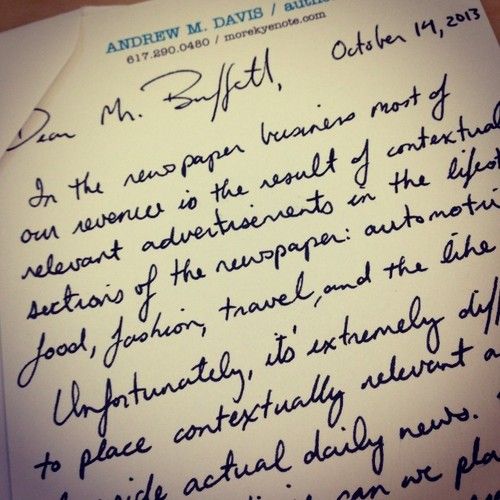 ANDREW M. DAVIS / auth
617.290.0480 / morekyenote.com
October 14, 2013
Dear Mr. Buffett,
In the newspaper business most of
our revenue is the result of contextual
relevant advertisements in the lifest
sections of the newspaper: automotiv
food, fashion, travel, and the like
Unfortunately, it's extremely diff
to place contextually relevant a
actual daily news.
can we pla